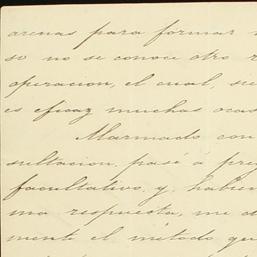 arenas para formar
so no se conoce otro
operacion, el cual, su
es eficaz muchas ocas
Alarmado con
sultacion, pasé á pre
facultativo y, habien
ma respuesta, me d
mente el método qu